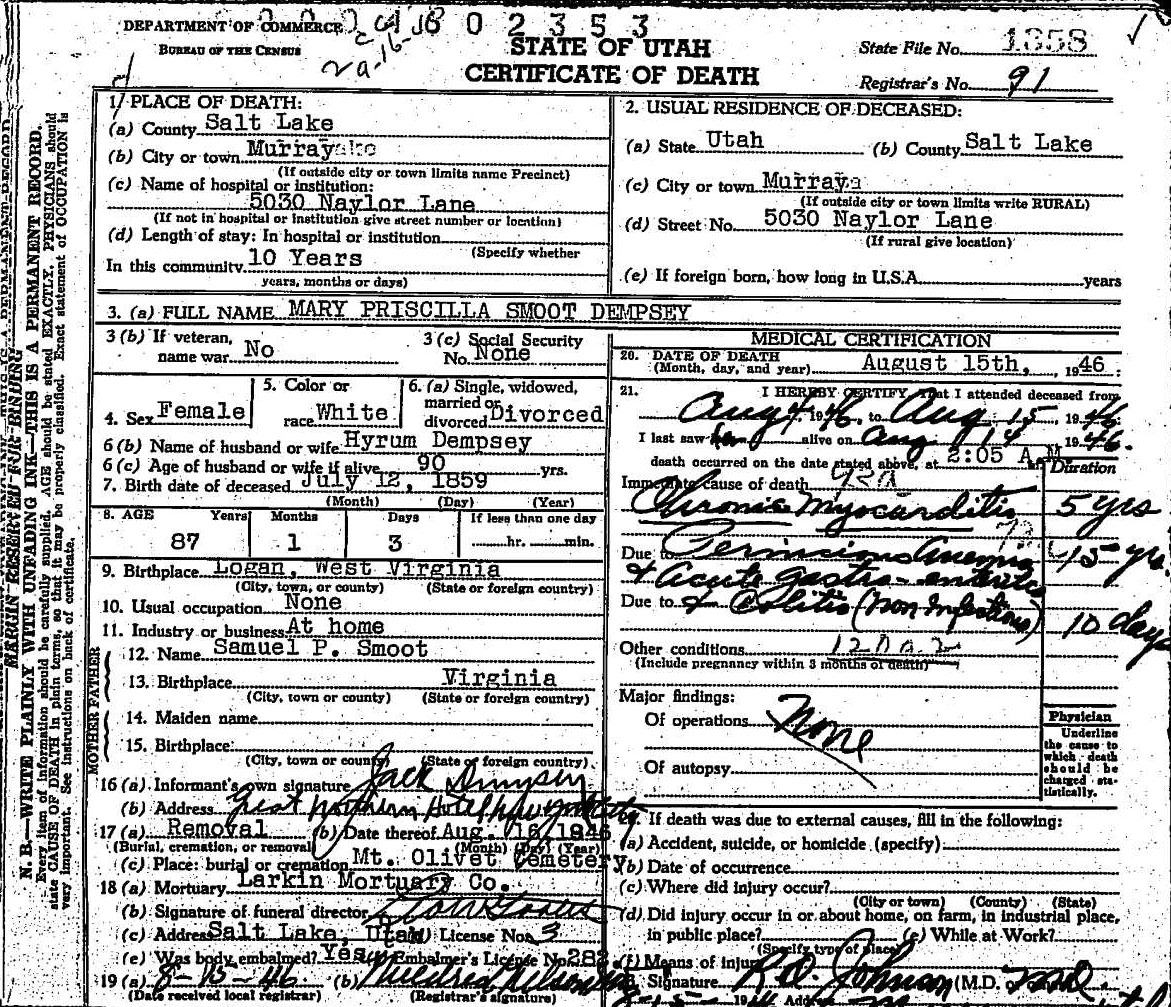 DEPARTMENT OF COMMERCE
BUREAU OF THE CENSUS
0 2 3 5 3
STATE OF UTAH
CERTIFICATE OF DEATH
State File No. 1358
Registrar's No. 91
N. B.—WRITE PLAINLY WITH UNFADING INK—THIS IS A PERMANENT RECORD.
MARGIN RESERVED FOR BINDING
Every item of information should be carefully supplied. AGE should be stated EXACTLY. PHYSICIANS should
state CAUSE OF DEATH in plain terms, so that it may be properly classified. Exact statement of OCCUPATION is
very important. See instructions on back of certificate.
1. PLACE OF DEATH:
(a) County Salt Lake
(b) City or town Murray
(If outside city or town limits name Precinct)
(c) Name of hospital or institution:
5030 Naylor Lane
(If not in hospital or institution give street number or location)
(d) Length of stay: In hospital or institution
(Specify whether
In this community 10 Years
years, months or days)
2. USUAL RESIDENCE OF DECEASED:
(a) State Utah (b) County Salt Lake
(c) City or town Murray
(If outside city or town limits write RURAL)
(d) Street No. 5030 Naylor Lane
(If rural give location)
(e) If foreign born, how long in U.S.A. years
3. (a) FULL NAME MARY PRISCILLA SMOOT DEMPSEY
3 (b) If veteran, name war No
3 (c) Social Security No. None
4. Sex Female
5. Color or race White
6. (a) Single, widowed, married or divorced Divorced
6 (b) Name of husband or wife Hyrum Dempsey
6 (c) Age of husband or wife if alive 90 yrs.
7. Birth date of deceased July 12, 1859
(Month) (Day) (Year)
8. AGE Years Months Days If less than one day
87 1 3 hr. min.
9. Birthplace Logan, West Virginia
(City, town, or county) (State or foreign country)
10. Usual occupation None
11. Industry or business At home
FATHER
12. Name Samuel P. Smoot
13. Birthplace Virginia
(City, town or county) (State or foreign country)
MOTHER
14. Maiden name
15. Birthplace:
(City, town or county) (State or foreign country)
16 (a) Informant's own signature Jack Dempsey
(b) Address Great Northern Hotel New York City
17 (a) Removal (b) Date thereof Aug. 16, 1946
(Burial, cremation, or removal) (Month) (Day) (Year)
(c) Place: burial or cremation Mt. Olivet Cemetery
18 (a) Mortuary Larkin Mortuary Co.
(b) Signature of funeral director
(c) Address Salt Lake, Utah (d) License No. 3
(e) Was body embalmed? Yes Embalmer's License No. 282
19 (a) 8-15-46 (b) Mildred Nelson
(Date received local registrar) (Registrar's signature)
MEDICAL CERTIFICATION
20. DATE OF DEATH
(Month, day, and year) August 15th, 1946
21. I HEREBY CERTIFY That I attended deceased from
Aug 4 1946 to Aug 15 1946
I last saw her alive on Aug 14 1946.
death occurred on the date stated above, at 2:05 A.M.
Duration
Immediate cause of death
Chronic Myocarditis 5 yrs
Due to Pernicious Anemia 15 yrs.
& Acute gastro-enteritis
Due to & Colitis (Non Infectious) 10 days
Other conditions
(Include pregnancy within 3 months of death)
Major findings:
Of operations None
Of autopsy
Physician
Underline
the cause to
which death
should be
charged sta-
tistically.
22. If death was due to external causes, fill in the following:
(a) Accident, suicide, or homicide (specify)
(b) Date of occurrence
(c) Where did injury occur?
(City or town) (County) (State)
(d) Did injury occur in or about home, on farm, in industrial place,
in public place? (e) While at Work?
(Specify type of place)
(f) Means of injury
Signature Johnson (M.D.